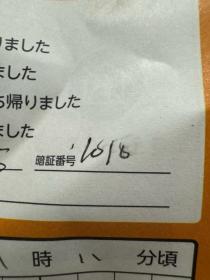 りました
ました
ち帰りました
ました
暗証番号 1018
時 八 分頃